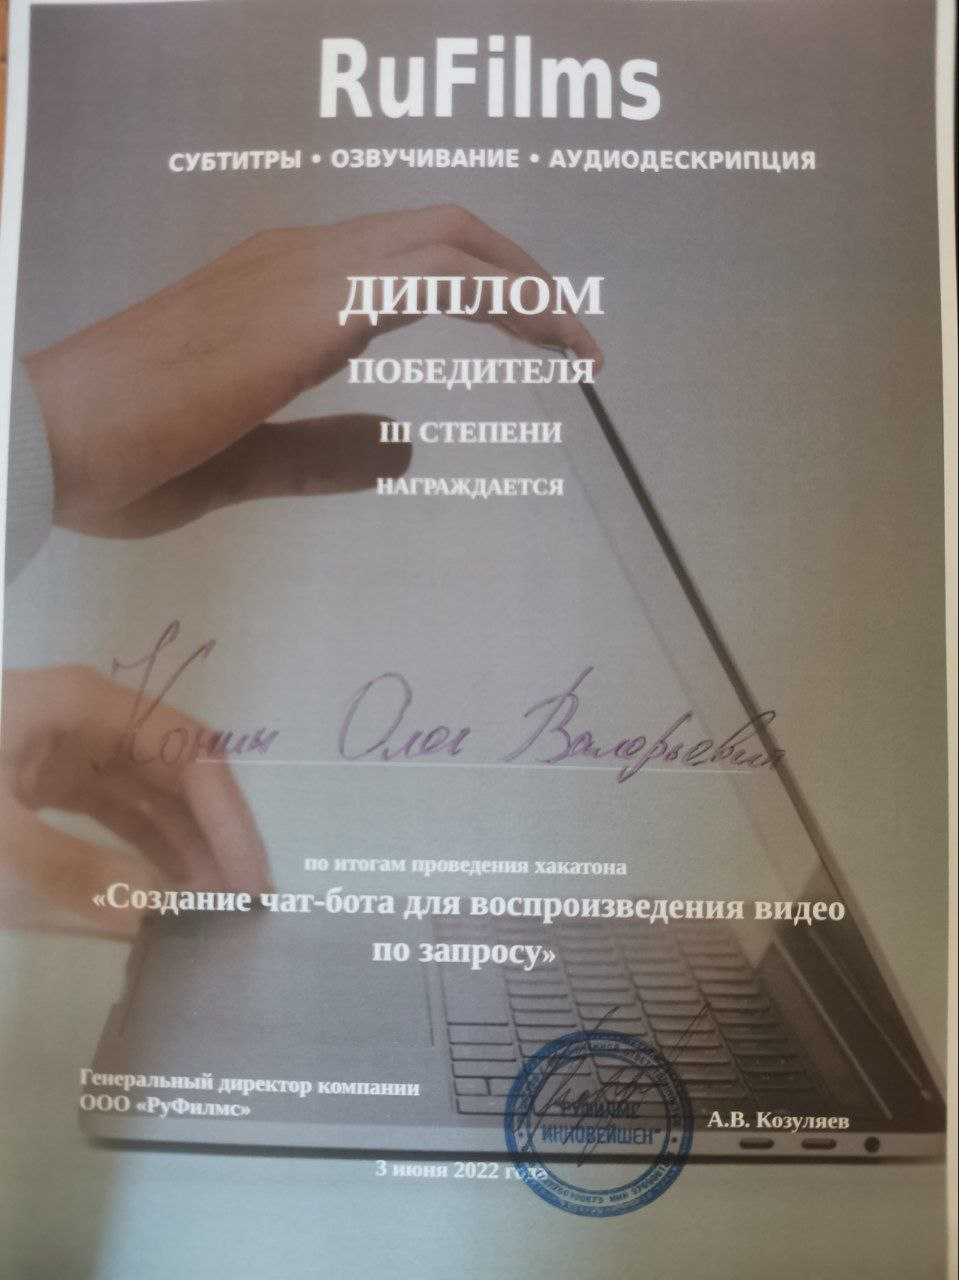 RuFilms
СУБТИТРЫ • ОЗВУЧИВАНИЕ • АУДИОДЕСКРИПЦИЯ
ДИПЛОМ
ПОБЕДИТЕЛЯ
III СТЕПЕНИ
НАГРАЖДАЕТСЯ
Конин Олег Валерьевич
по итогам проведения хакатона
«Создание чат-бота для воспроизведения видео
по запросу»
Генеральный директор компании
ООО «РуФилмс»
"РУФИЛМС
ИННОВЕЙШЕН"
А.В. Козуляев
3 июня 2022 года